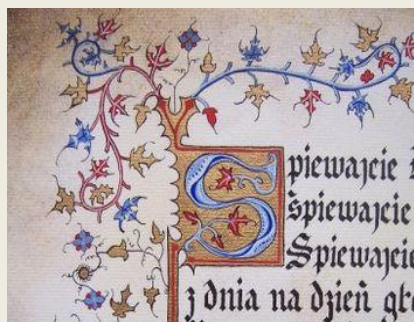 Spiewajcie
spiewajcie
Spiewajcie
z dnia na dzień